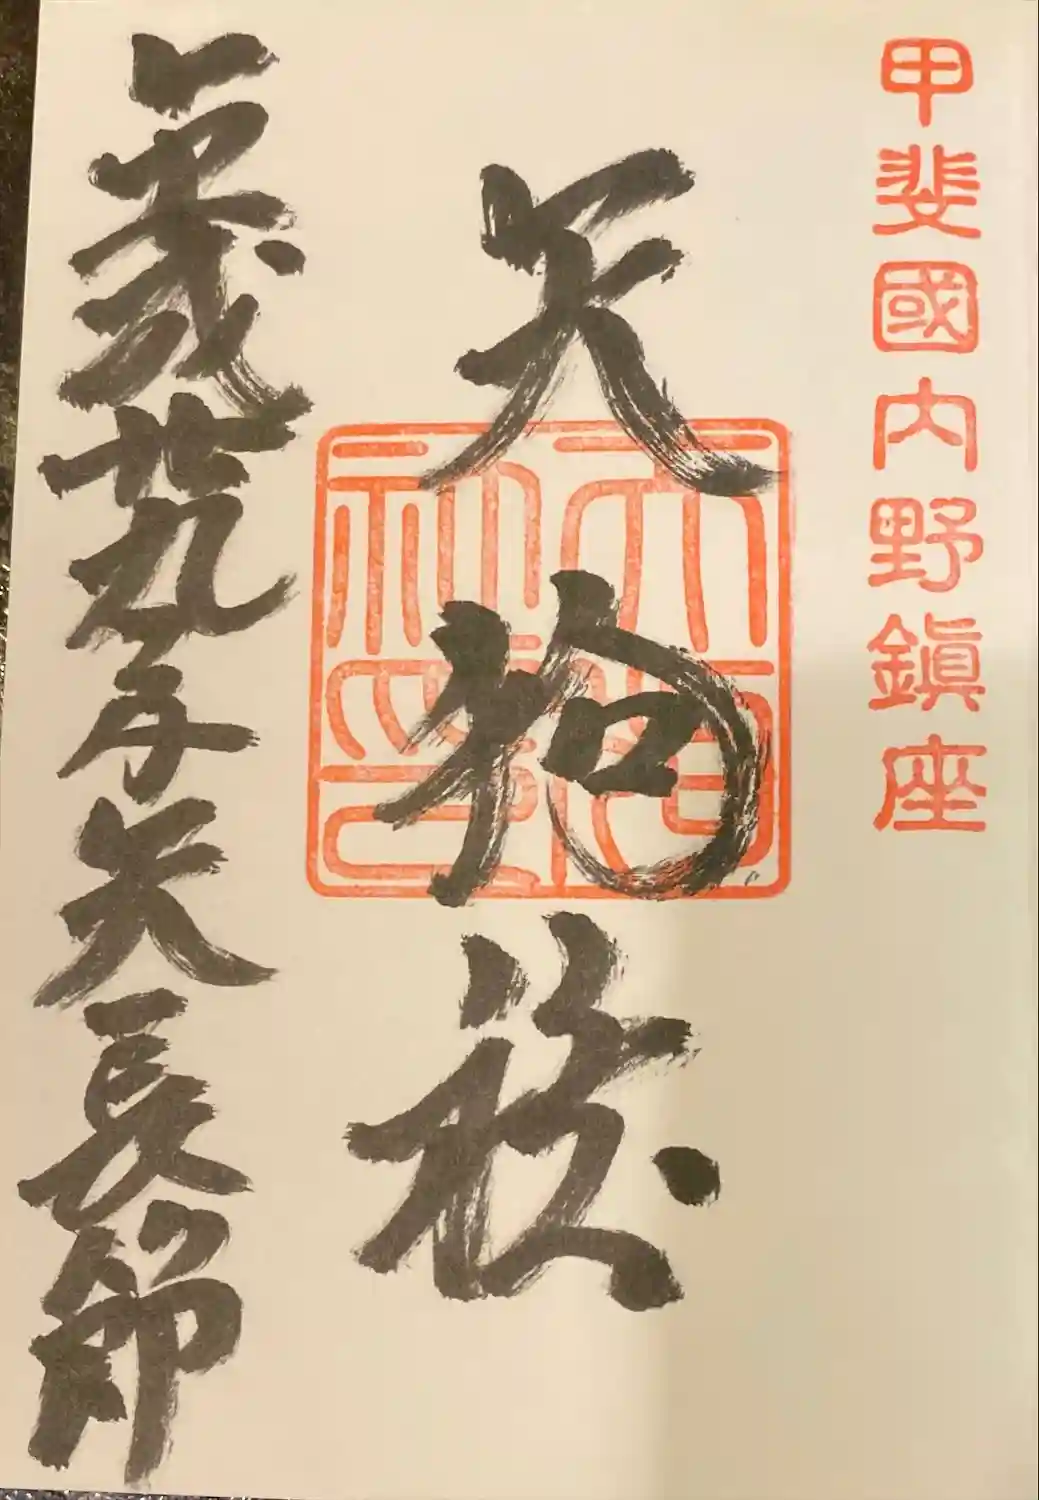 甲斐國内野鎭座
天狗社
天狗社印
平成廿九年天長節